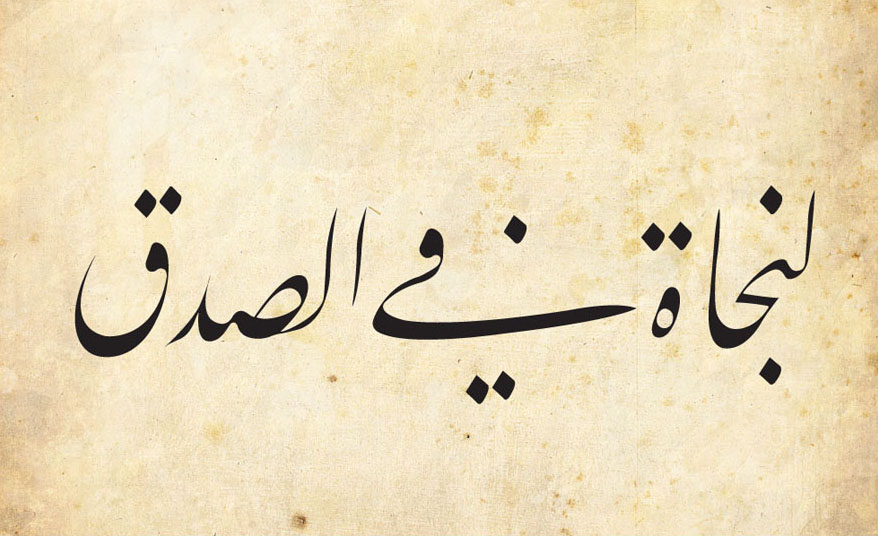 لنجاة في الصدق